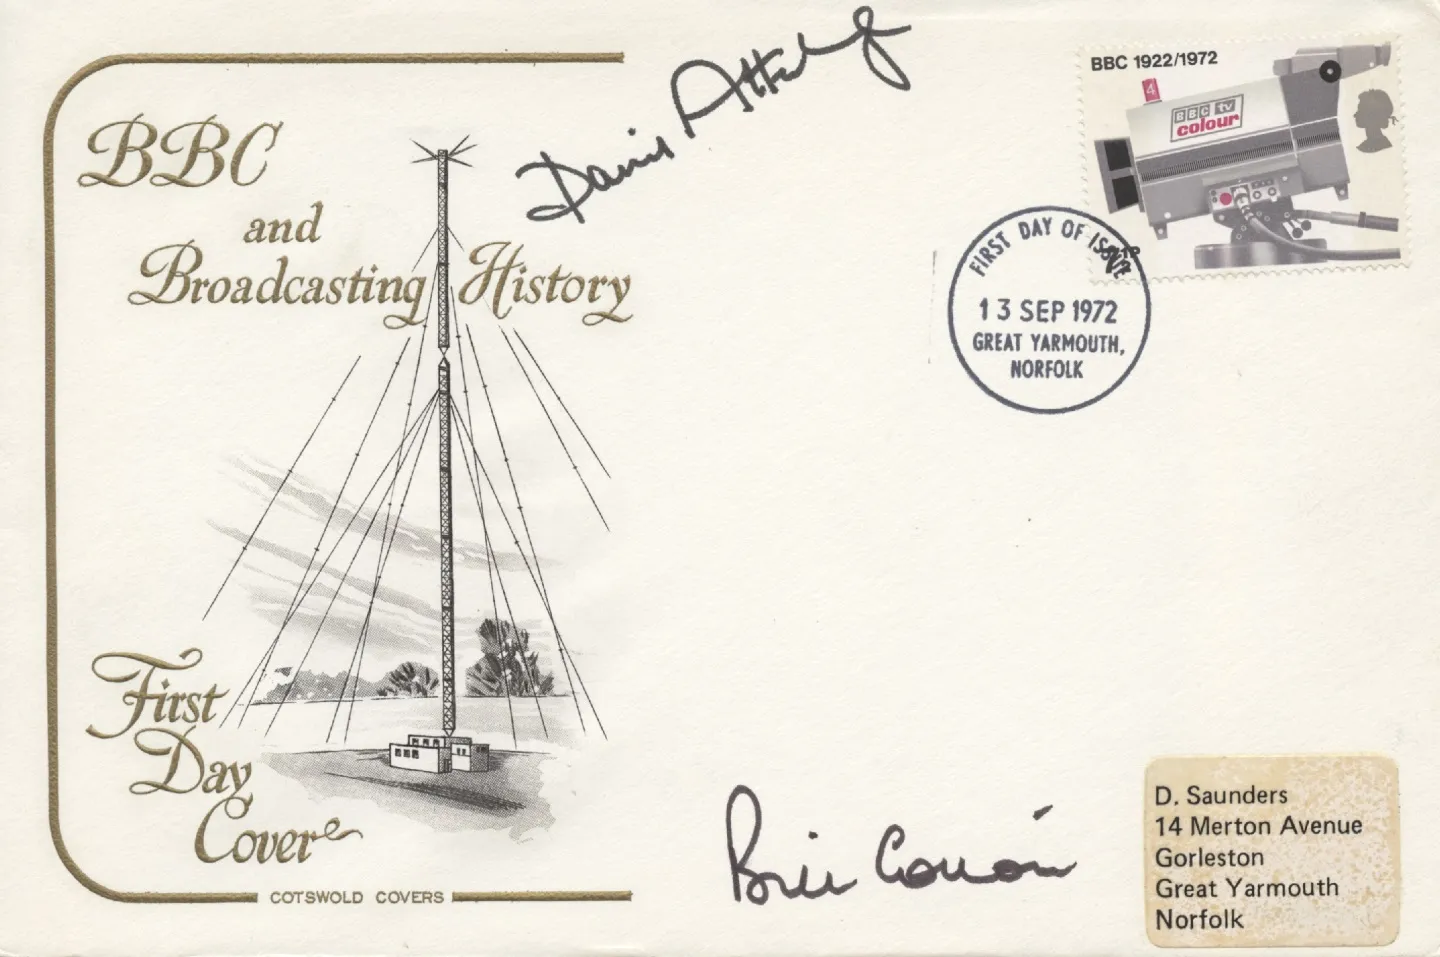 BBC
and
Broadcasting History
First
Day
Cover
COTSWOLD COVERS
David
BBC 1922/1972
4
BBC tv
colour
FIRST DAY OF ISSUE
13 SEP 1972
GREAT YARMOUTH,
NORFOLK
Bill
D. Saunders
14 Merton Avenue
Gorleston
Great Yarmouth
Norfolk